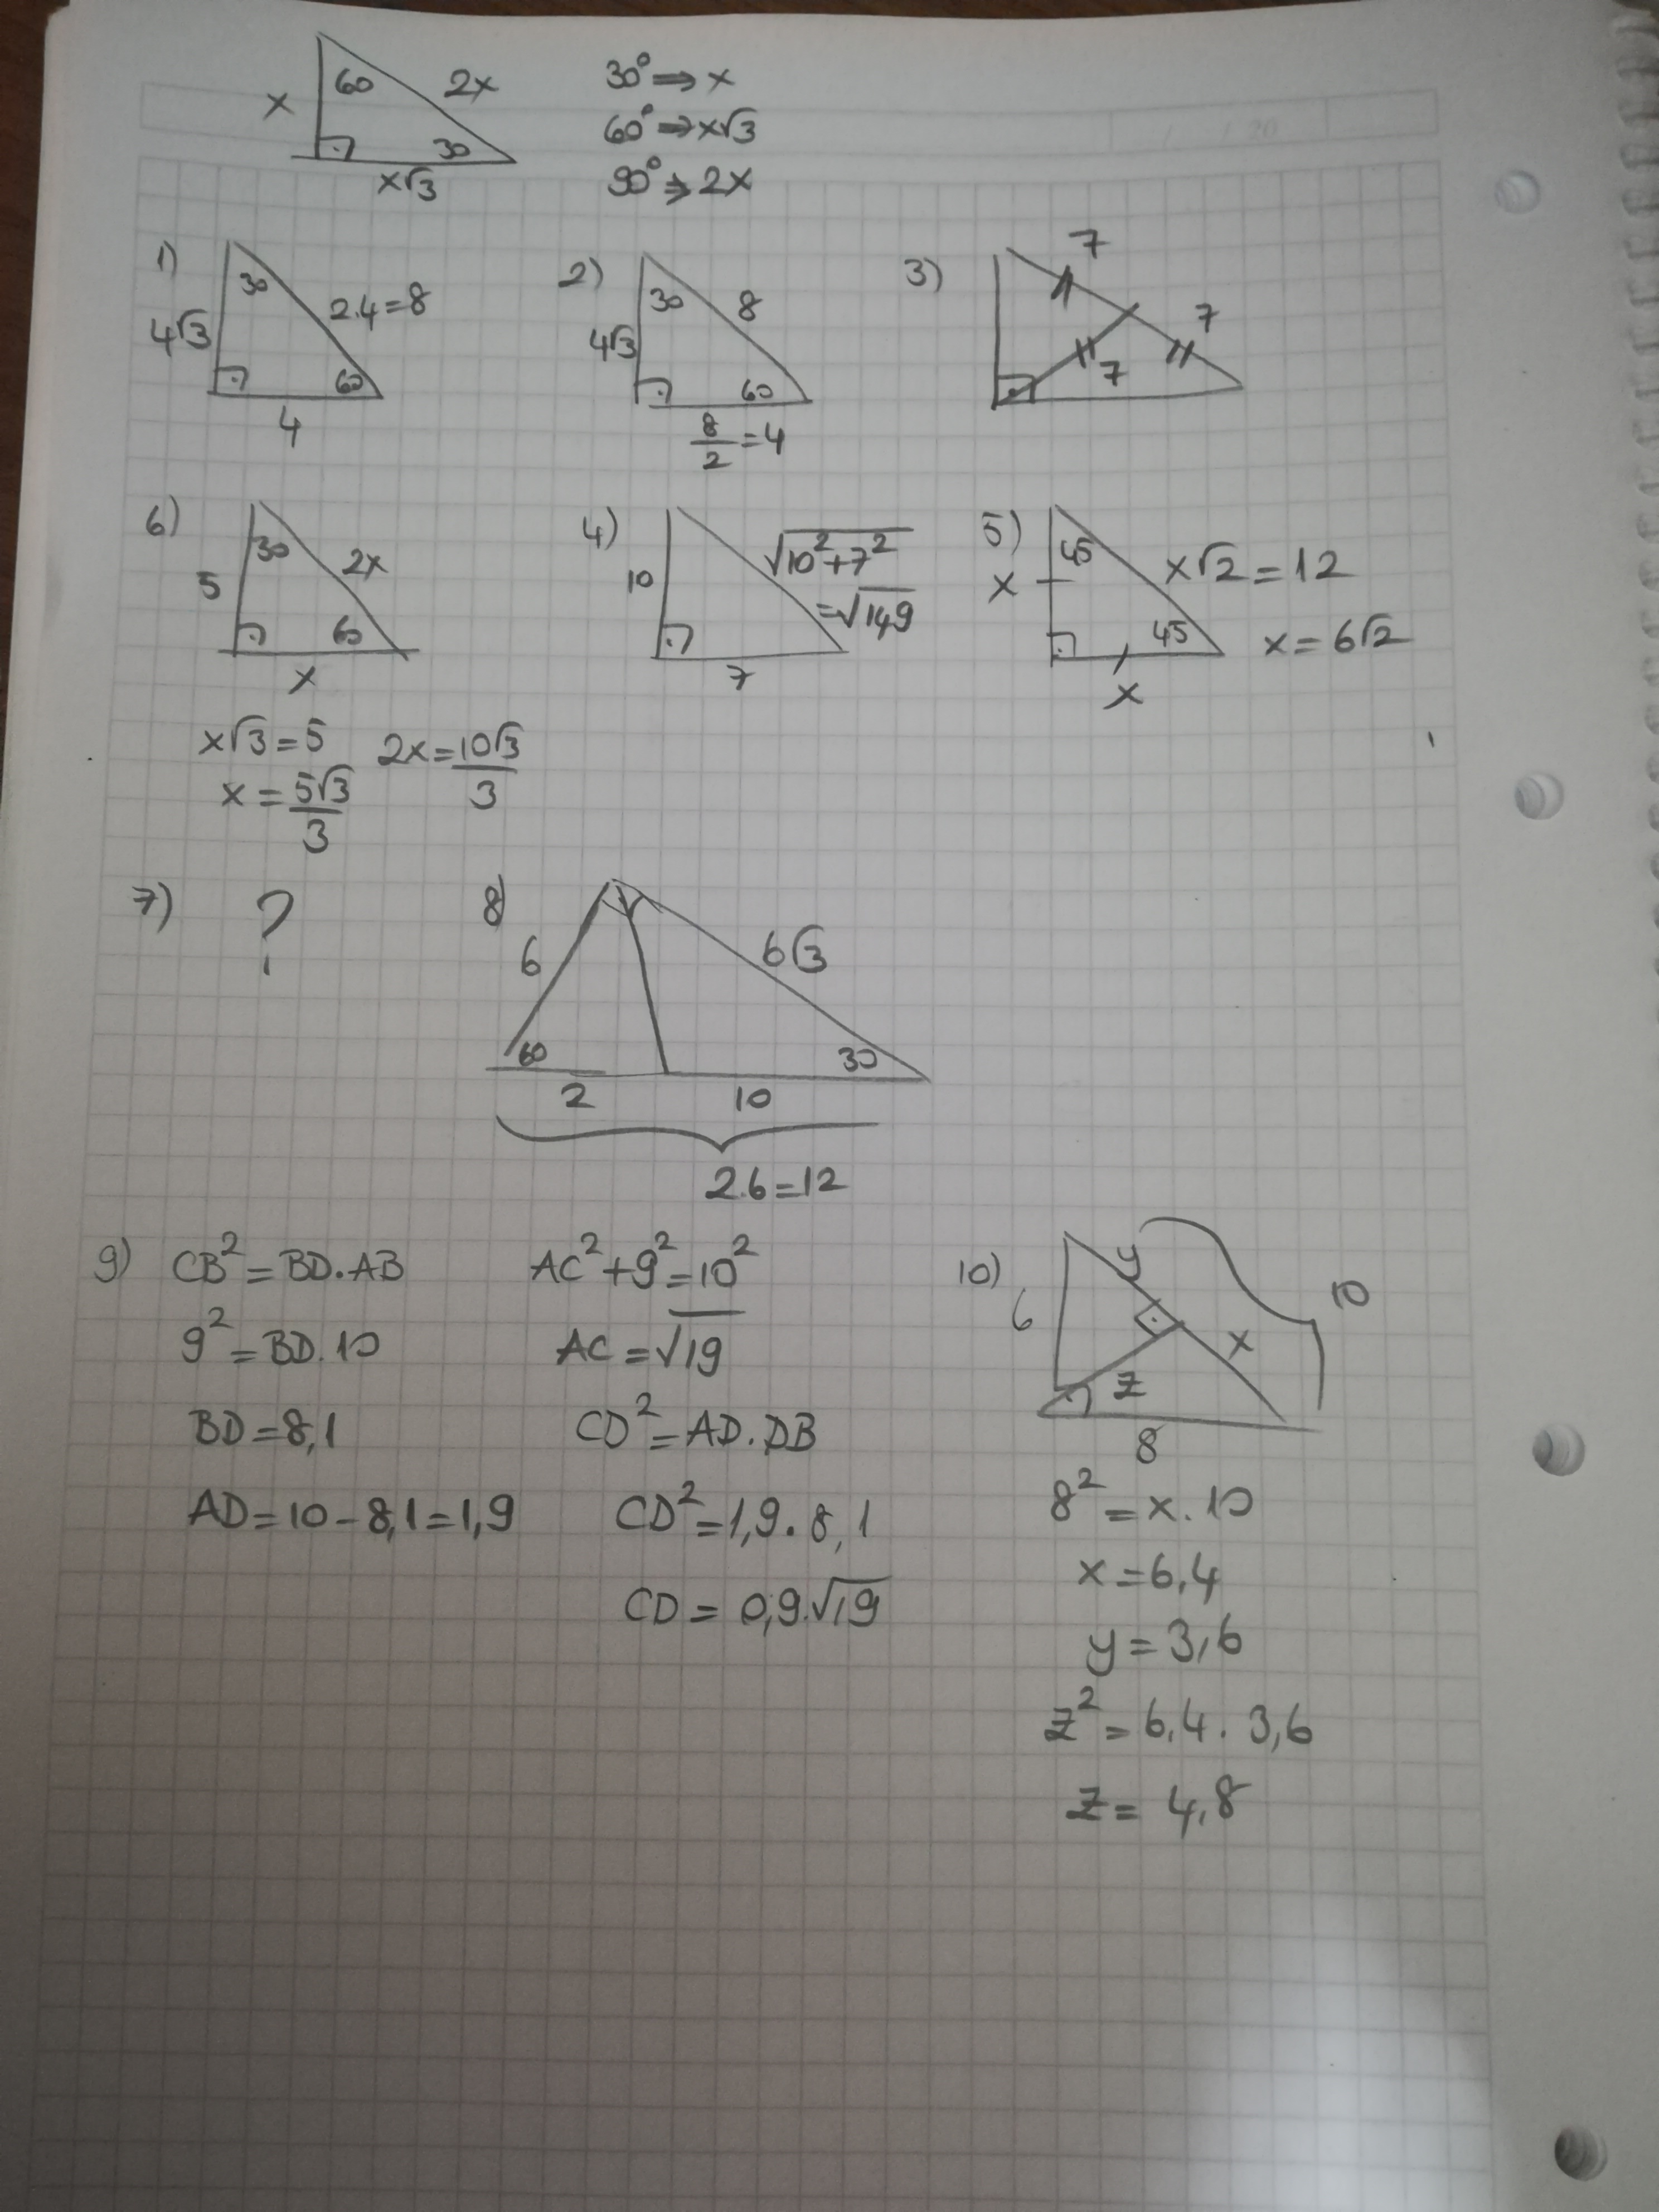 x 60 2x 30 x√3
30° ⇒ x
60° ⇒ x√3
90° ⇒ 2x
1) 30 4√3 2.4=8 60 4
2) 30 8 4√3 60 8/2=4
3) 7 7 7
6) 30 5 2x 60 x
x√3=5
x=5√3/3
2x=10√3/3
4) 10 √10²+7²
=√149
7
5) 45 x x√2=12
45 x=6√2
x
7) ?
8) 6 6√3
60 30
2 10
2.6=12
9) CB²=BD.AB
9²=BD.10
BD=8,1
AD=10-8,1=1,9
AC²+9²=10²
AC=√19
CD²=AD.DB
CD²=1,9.8,1
CD=0,9.√19
10) 6 y 10
x
z
8
8²=x.10
x=6,4
y=3,6
z²=6,4.3,6
z=4,8